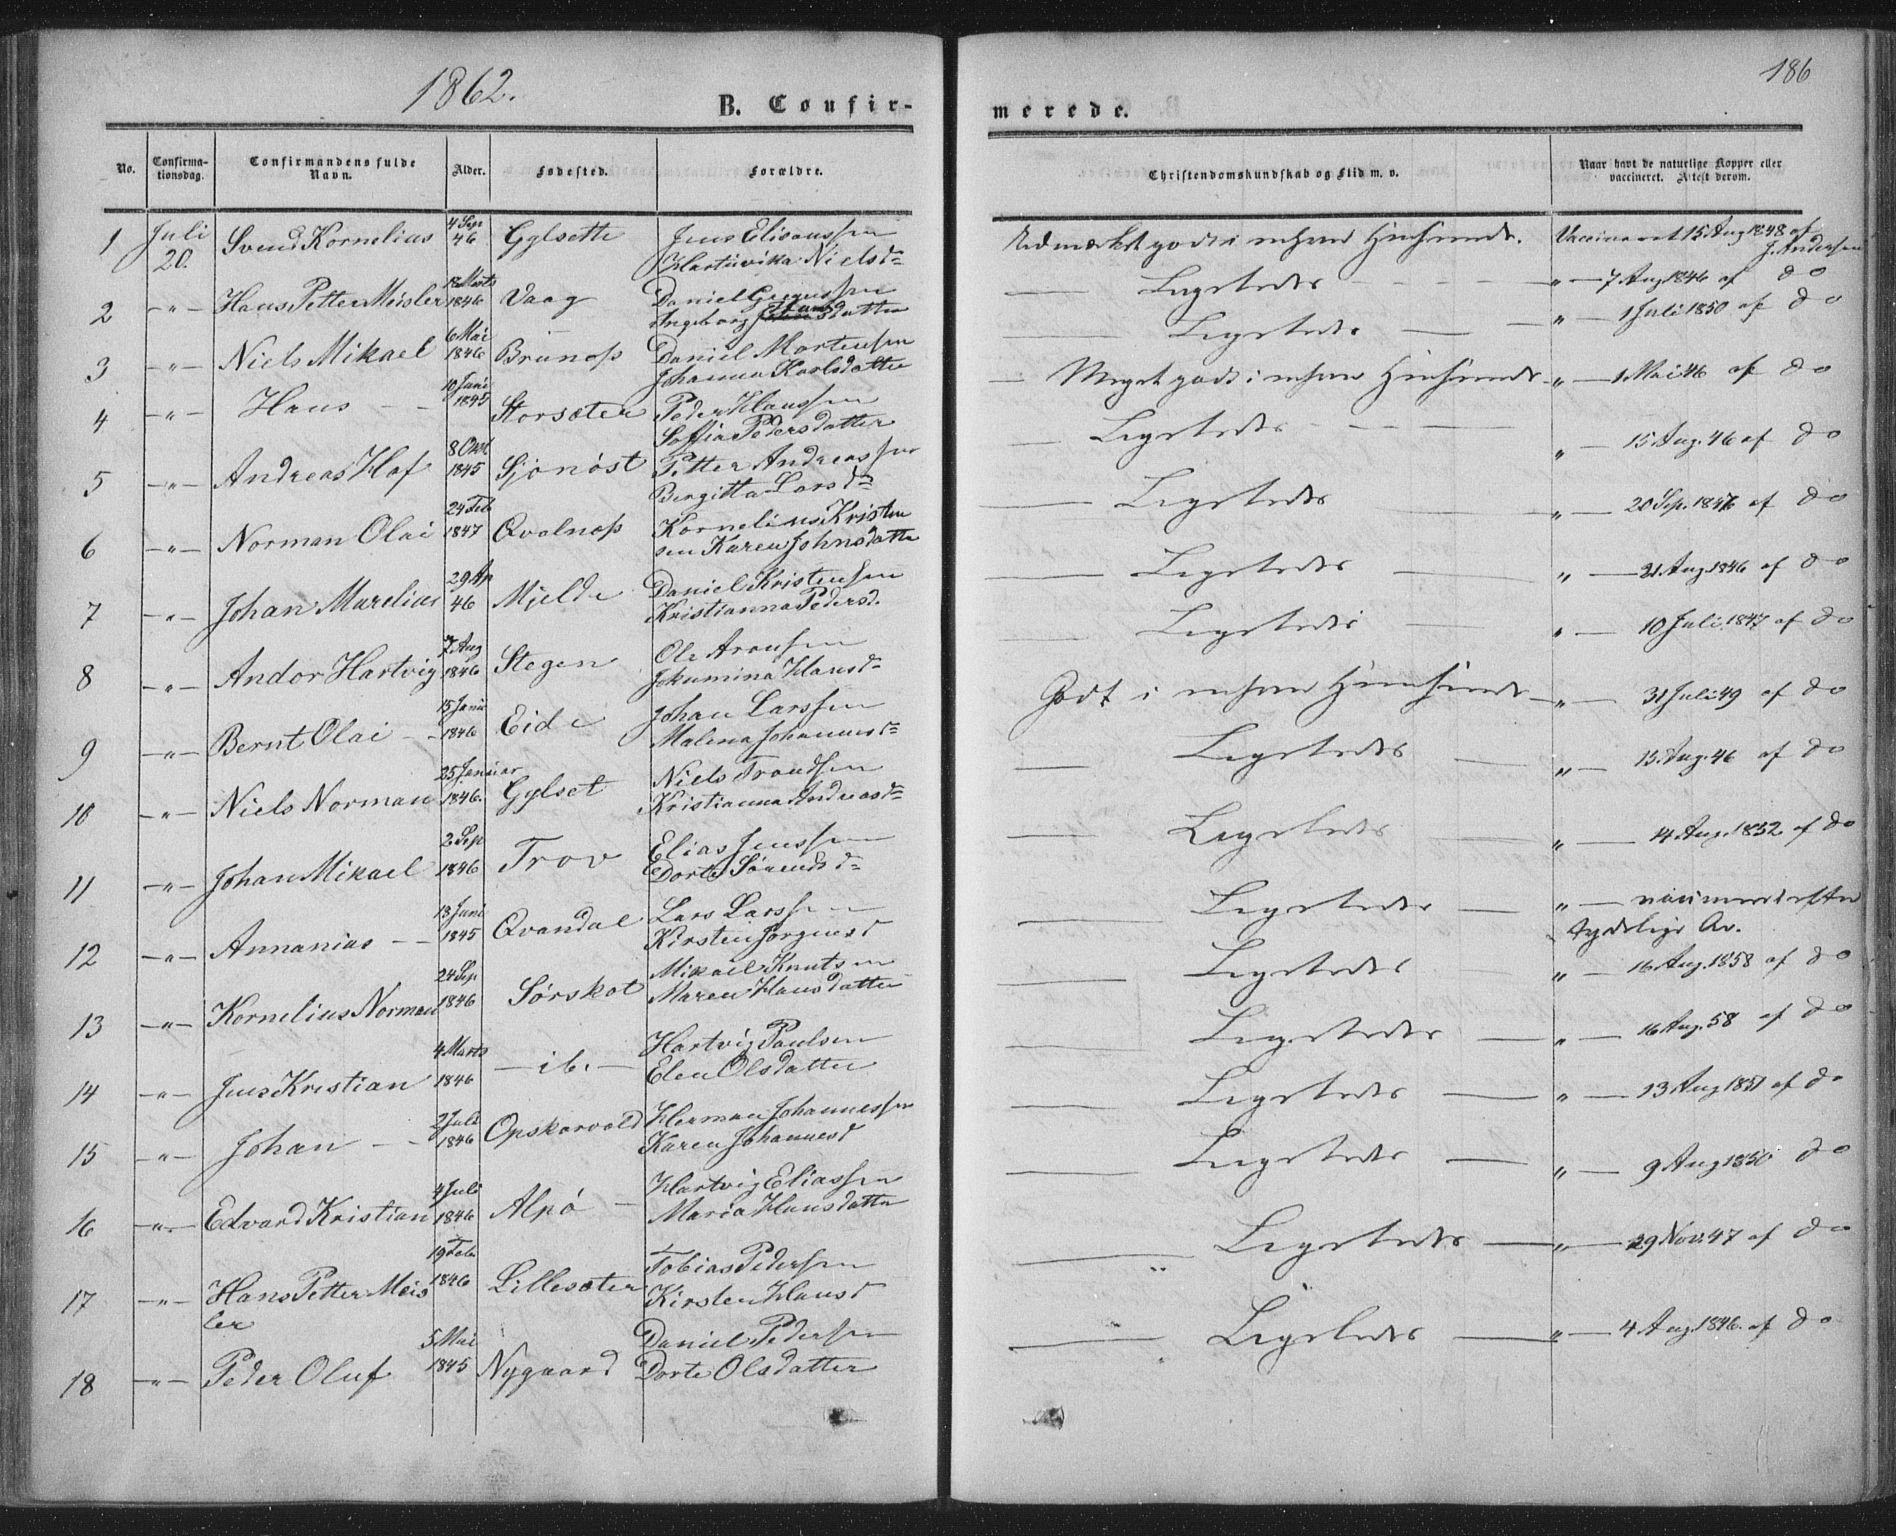 1862.
186
B. Confir-
merede.
No.
Confirma-
tionsdag.
Confirmandens fulde
Navn.
Alder.
Fødested.
Forældre.
Christendomskundskab og Flid m. v.
Naar havt de naturlige Kopper eller
vaccineret. Attest derom.
1 Juli 20. Svend Kornelius 4 Sep 46 Gylsette Jens Eliasussen
Hartuvika Nielsd=
Udmærket godt i enhver Henseende. Vaccineret 15 Aug 1848 af
J. Andersen
2 -"- Hans Petter Meisler 18 Marts 1846 Vaag Daniel
Ingeborg datter
Ligeledes "- 7 Aug 1846 af do
3 -"- Niels Mikael 6 Mai 1846 Brunøss Daniel Mortensen
Johanna Karlsdatter
Ligeledes "- 1 Juli 1850 af do
4 -"- Hans 10 Juni 1845 Storsæter Peder Hanssen
Soffia Pedersdatter
Meget godt i enhver Henseende "- 1 Mai 46 af do
5 -"- Andreas Hof 8 Okt 1845 Sjonøst Petter Andreassen
Bergitta Larsd=
Ligeledes "- 15 Aug. 46 af do
6 -"- Norman Olai 24 Feb 1847 Qvalnøss Kornelius Kristen
sen Karen Johnsdatter
Ligeledes "- 20 Sep. 1847 af do
7 -"- Johan Marelius 29 Ap 46 Mjelde Daniel Kristensen
Kristianna Pedersd.
Ligeledes "- 21 Aug 1846 af do
8 -"- Andor Hartvig 7 Aug 1846 Stegen Ole Aronsen
Jokumina Hansd=
Ligeledes "- 10 Juli. 1847 af do
9 -"- Bernt Olai 15 Janu 1846 Eide Johan Larssen
Malena Johannesd=
Godt i enhver Henseende "- 31 Juli 49 af do
10 -"- Niels Norman 25 Januar 1846. Gylset Niels Trondsen
Kristianna Andreasd=
Ligeledes "- 15 Aug. 46 af do
11 -"- Johan Mikael 2 Sep 1846 Trov Elias Jenssen
Dorte Sørensd=
Ligeledes "- 14 Aug. 1852 af do
12 -"- Annanias 13 Juni 1845 Qvandal Lars Larssen
Kirsten Jørgensd
Ligeledes "- vaccineret efter
tydelige Ar.
13 -"- Kornelius Norman 24 Sep 1846 Sørskot Mikael Knutsen
Maren Hansdatter
Ligeledes "- 16 Aug. 1858 af do
14 -"- Jens Kristian 4 Marts 1846 -ib.- Hartvig Paulsen
Elen Olsdatter
Ligeledes "- 16 Aug. 58 af do
15 -"- Johan 2 Juli 1846 Opskarvold Herman Johannessen
Karen Johannesd
Ligeledes "- 13 Aug 1851 af do
16 -"- Edvard Kristian 4 Juli 1846 Alpø Hartvig Eliassen
Maria Hansdatter
Ligeledes "- 9 Aug 1850 do
17 -"- Hans Petter Meis
ler 19 Feb 1846 Lillesæter Tobias Pedersen
Kirsten Hansd
Ligeledes "- 29 Nov. 47 af do
18 -"- Peder Oluf 5 Mai 1845 Nygaard Daniel Pedersen
Dorte Olsdatter
Ligeledes "- 4 Aug 1846. af do